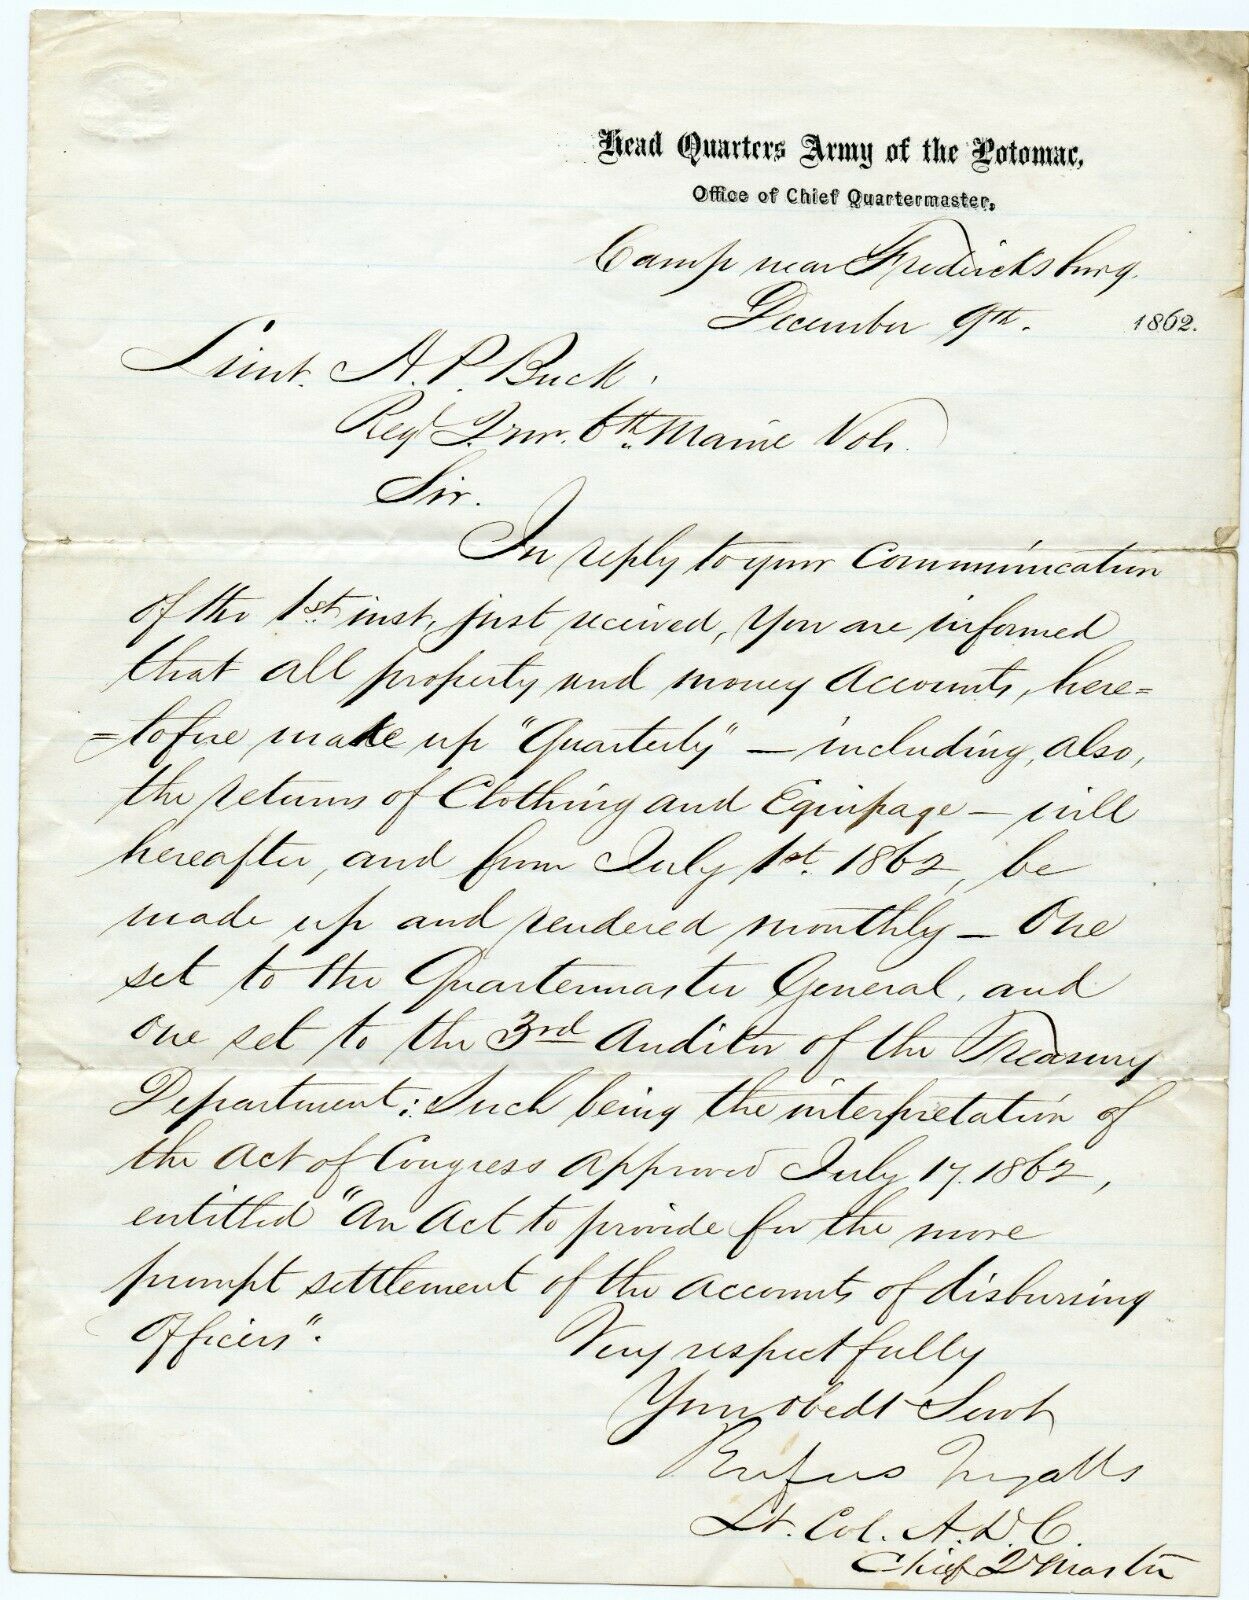 Head Quarters Army of the Potomac,
Office of Chief Quartermaster,
Camp near Fredericksburg.
December 9th. 1862.
Lieut. A. P. Buck.
Regl Q.mr. 6th Maine Vols.
Sir.
In reply to your Communication
of the 1st inst, just received, You are informed
that all property and money Accounts, here=
=tofore make up "Quarterly" — including, also,
the returns of Clothing and Equipage — will
hereafter, and from July 1st. 1862, be
made up and rendered monthly — One
set to the Quartermaster General, and
One set to the 3rd Auditor of the Treasury
Department: Such being the interpretation of
the Act of Congress Approved July 17. 1862,
entitled "An Act to provide for the more
prompt settlement of the Accounts of disbursing
Officers".
Very respectfully
Your obedt Servt
Rufus Ingalls
Lt. Col. A. D. C.
Chief Qr Master